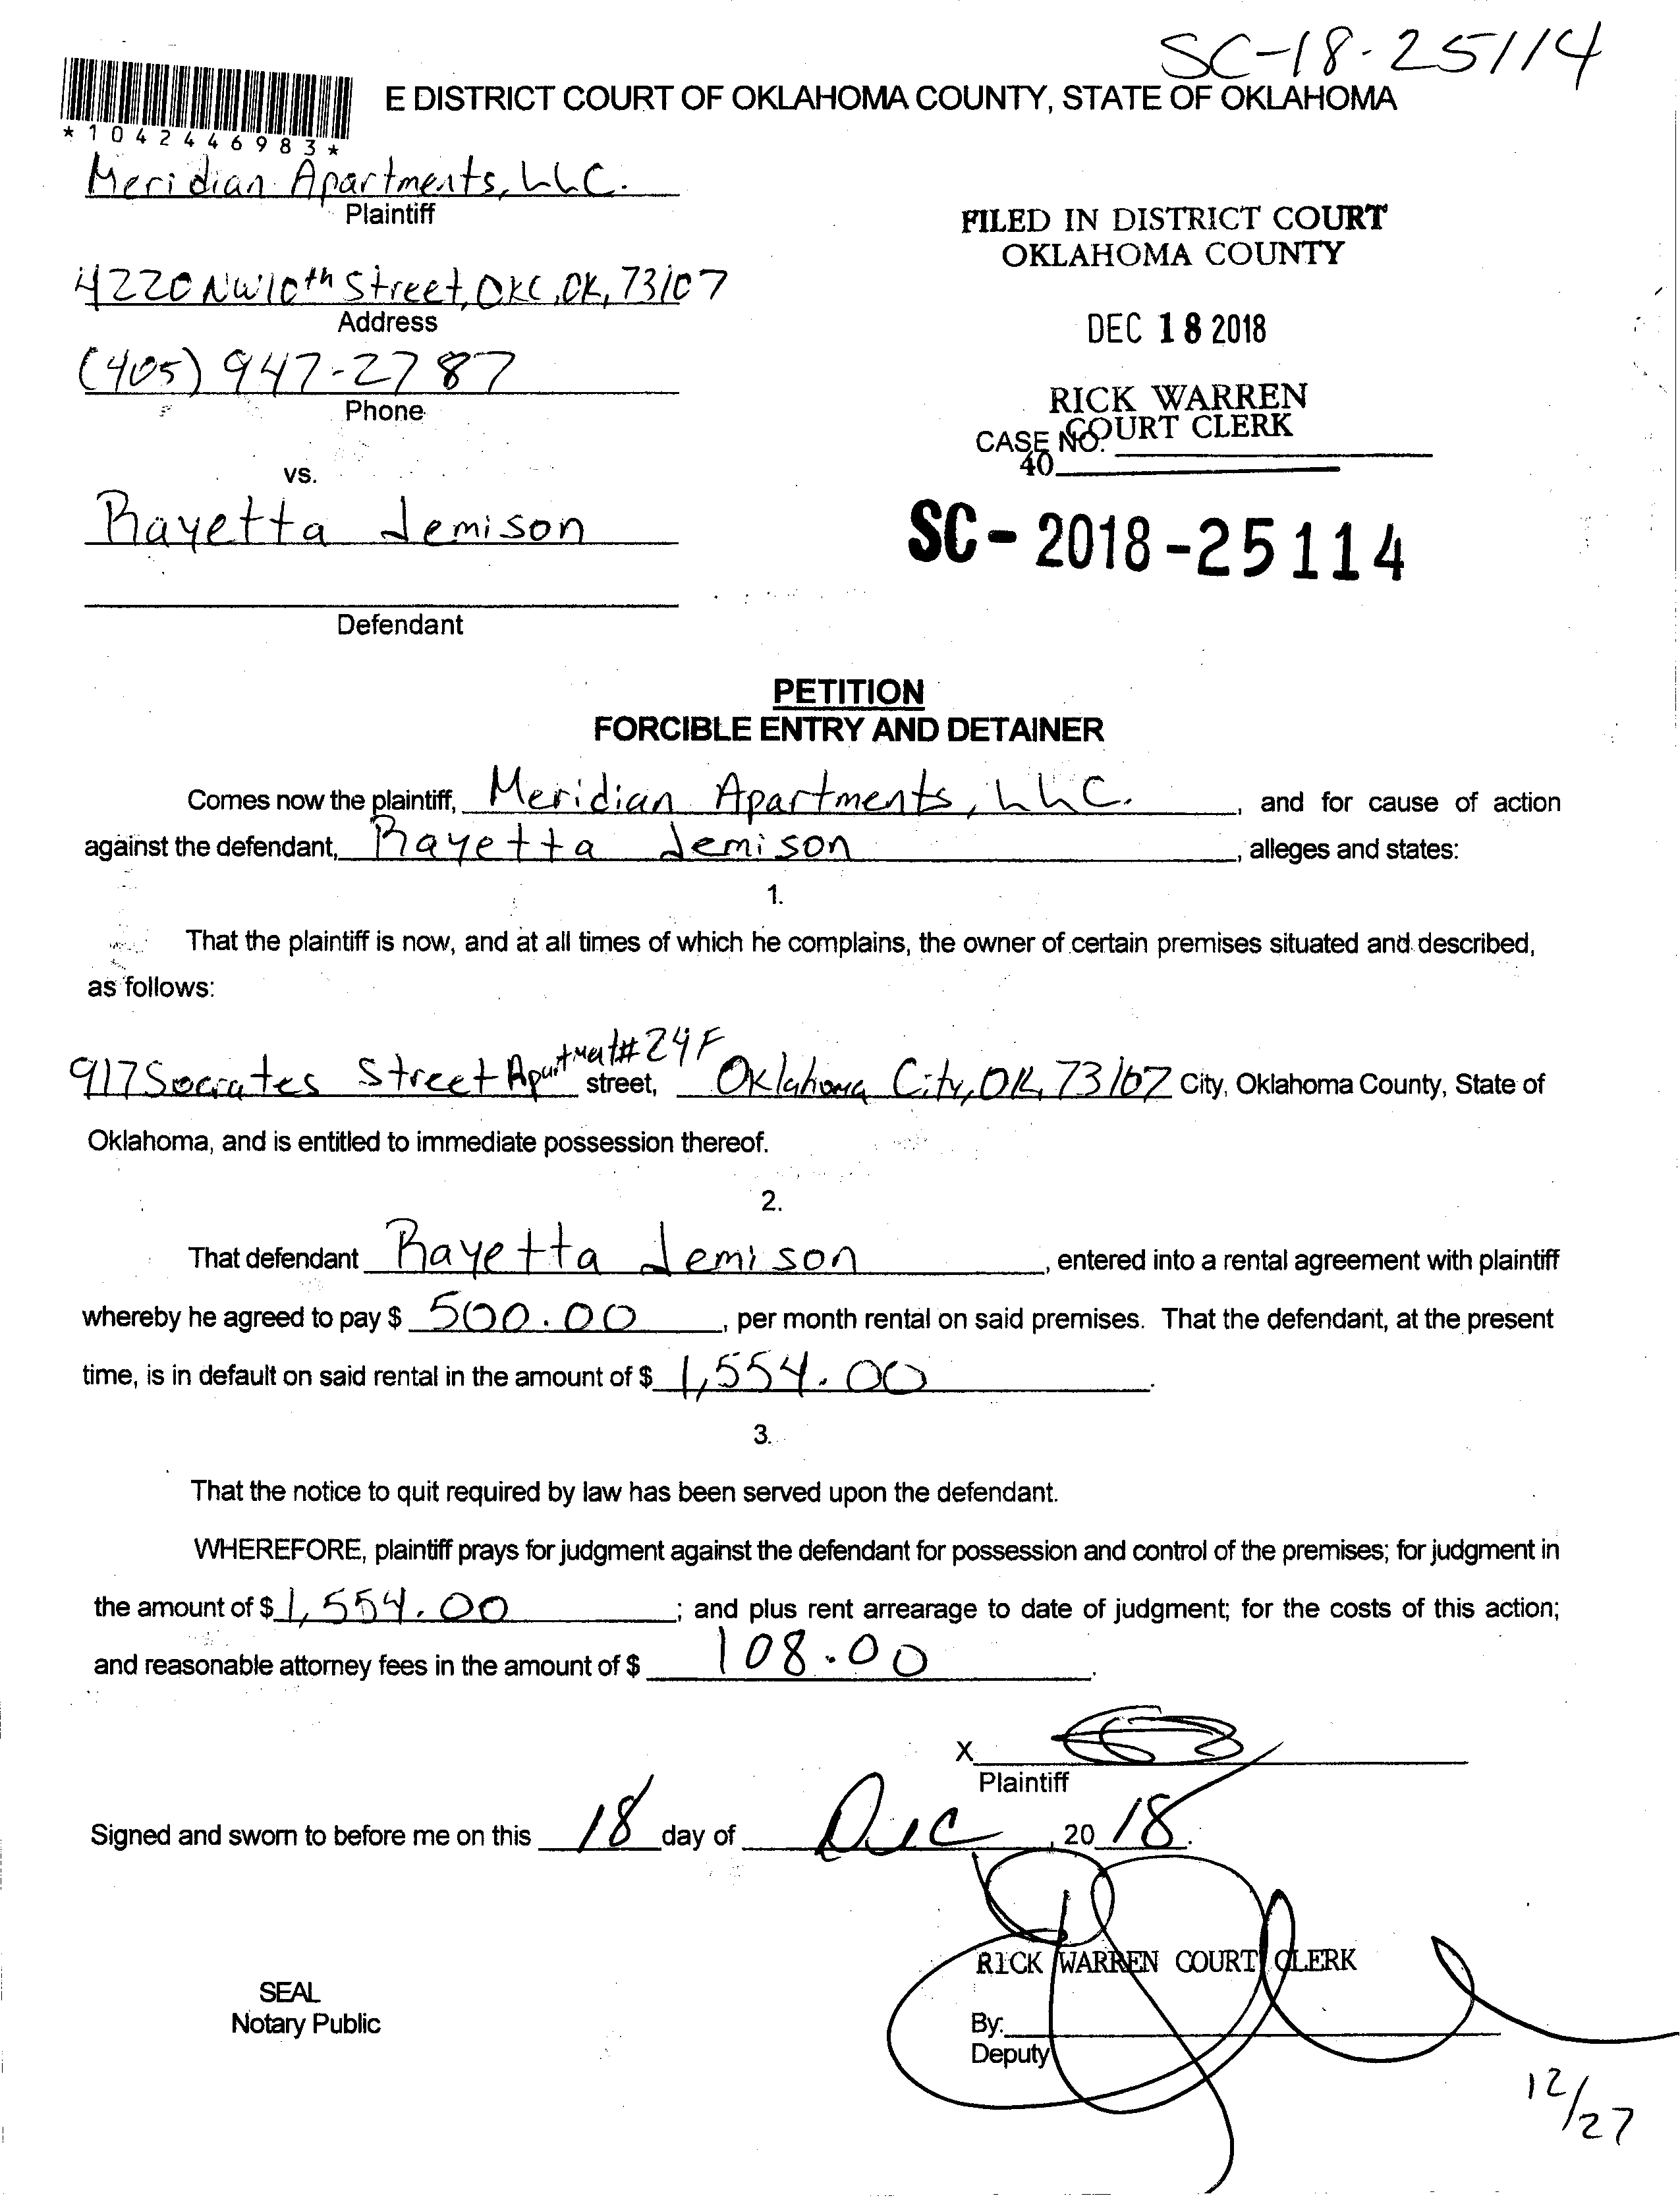 SC-18-25114
E DISTRICT COURT OF OKLAHOMA COUNTY, STATE OF OKLAHOMA
*1042446983*
Meridian Apartments, LLC.
Plaintiff
FILED IN DISTRICT COURT
OKLAHOMA COUNTY
4220 NW 10th Street, OKC, OK, 73107
Address
DEC 18 2018
(405) 947-2787
Phone
RICK WARREN
COURT CLERK
CASE NO.
40
vs.
Rayetta Jemison
SC-2018-25114
Defendant
PETITION
FORCIBLE ENTRY AND DETAINER
Comes now the plaintiff, Meridian Apartments, LLC., and for cause of action
against the defendant, Rayetta Jemison, alleges and states:
1.
That the plaintiff is now, and at all times of which he complains, the owner of certain premises situated and described,
as follows:
917 Socrates Street Apartment# 24F street, Oklahoma City, OK, 73107 City, Oklahoma County, State of
Oklahoma, and is entitled to immediate possession thereof.
2.
That defendant Rayetta Jemison, entered into a rental agreement with plaintiff
whereby he agreed to pay $ 500.00, per month rental on said premises. That the defendant, at the present
time, is in default on said rental in the amount of $ 1,554.00.
3.
That the notice to quit required by law has been served upon the defendant.
WHEREFORE, plaintiff prays for judgment against the defendant for possession and control of the premises; for judgment in
the amount of $ 1,554.00; and plus rent arrearage to date of judgment; for the costs of this action;
and reasonable attorney fees in the amount of $ 108.00.
X
Plaintiff
Signed and sworn to before me on this 18 day of Dec, 20 18.
RICK WARREN COURT CLERK
SEAL
Notary Public
By:
Deputy
12/27